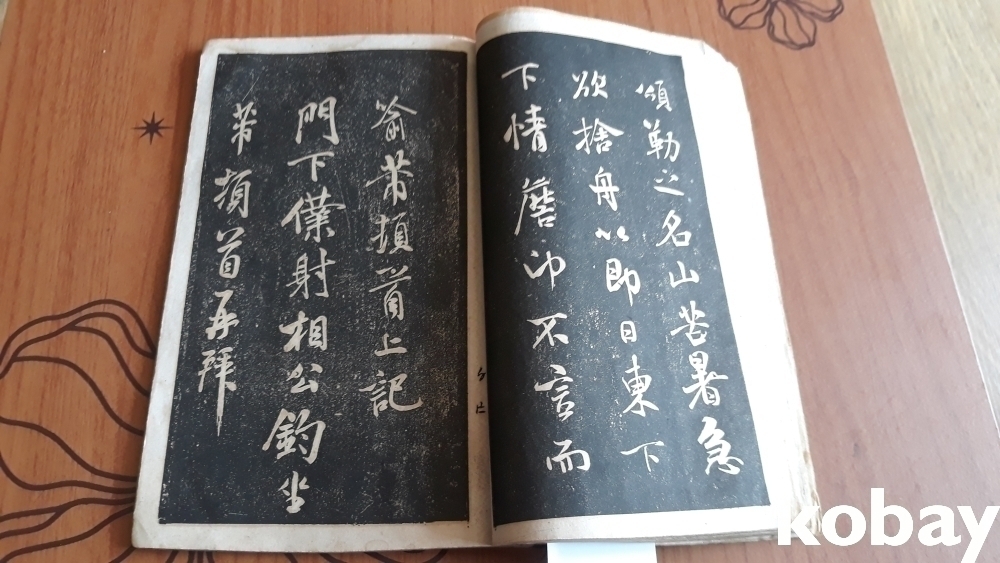 頌勒之名山苦暑急
欲捨舟以即日東下
下情詹卬不言而
俞芾頓首上記
門下僕射相公鈞坐
芾頓首再拜
kobay